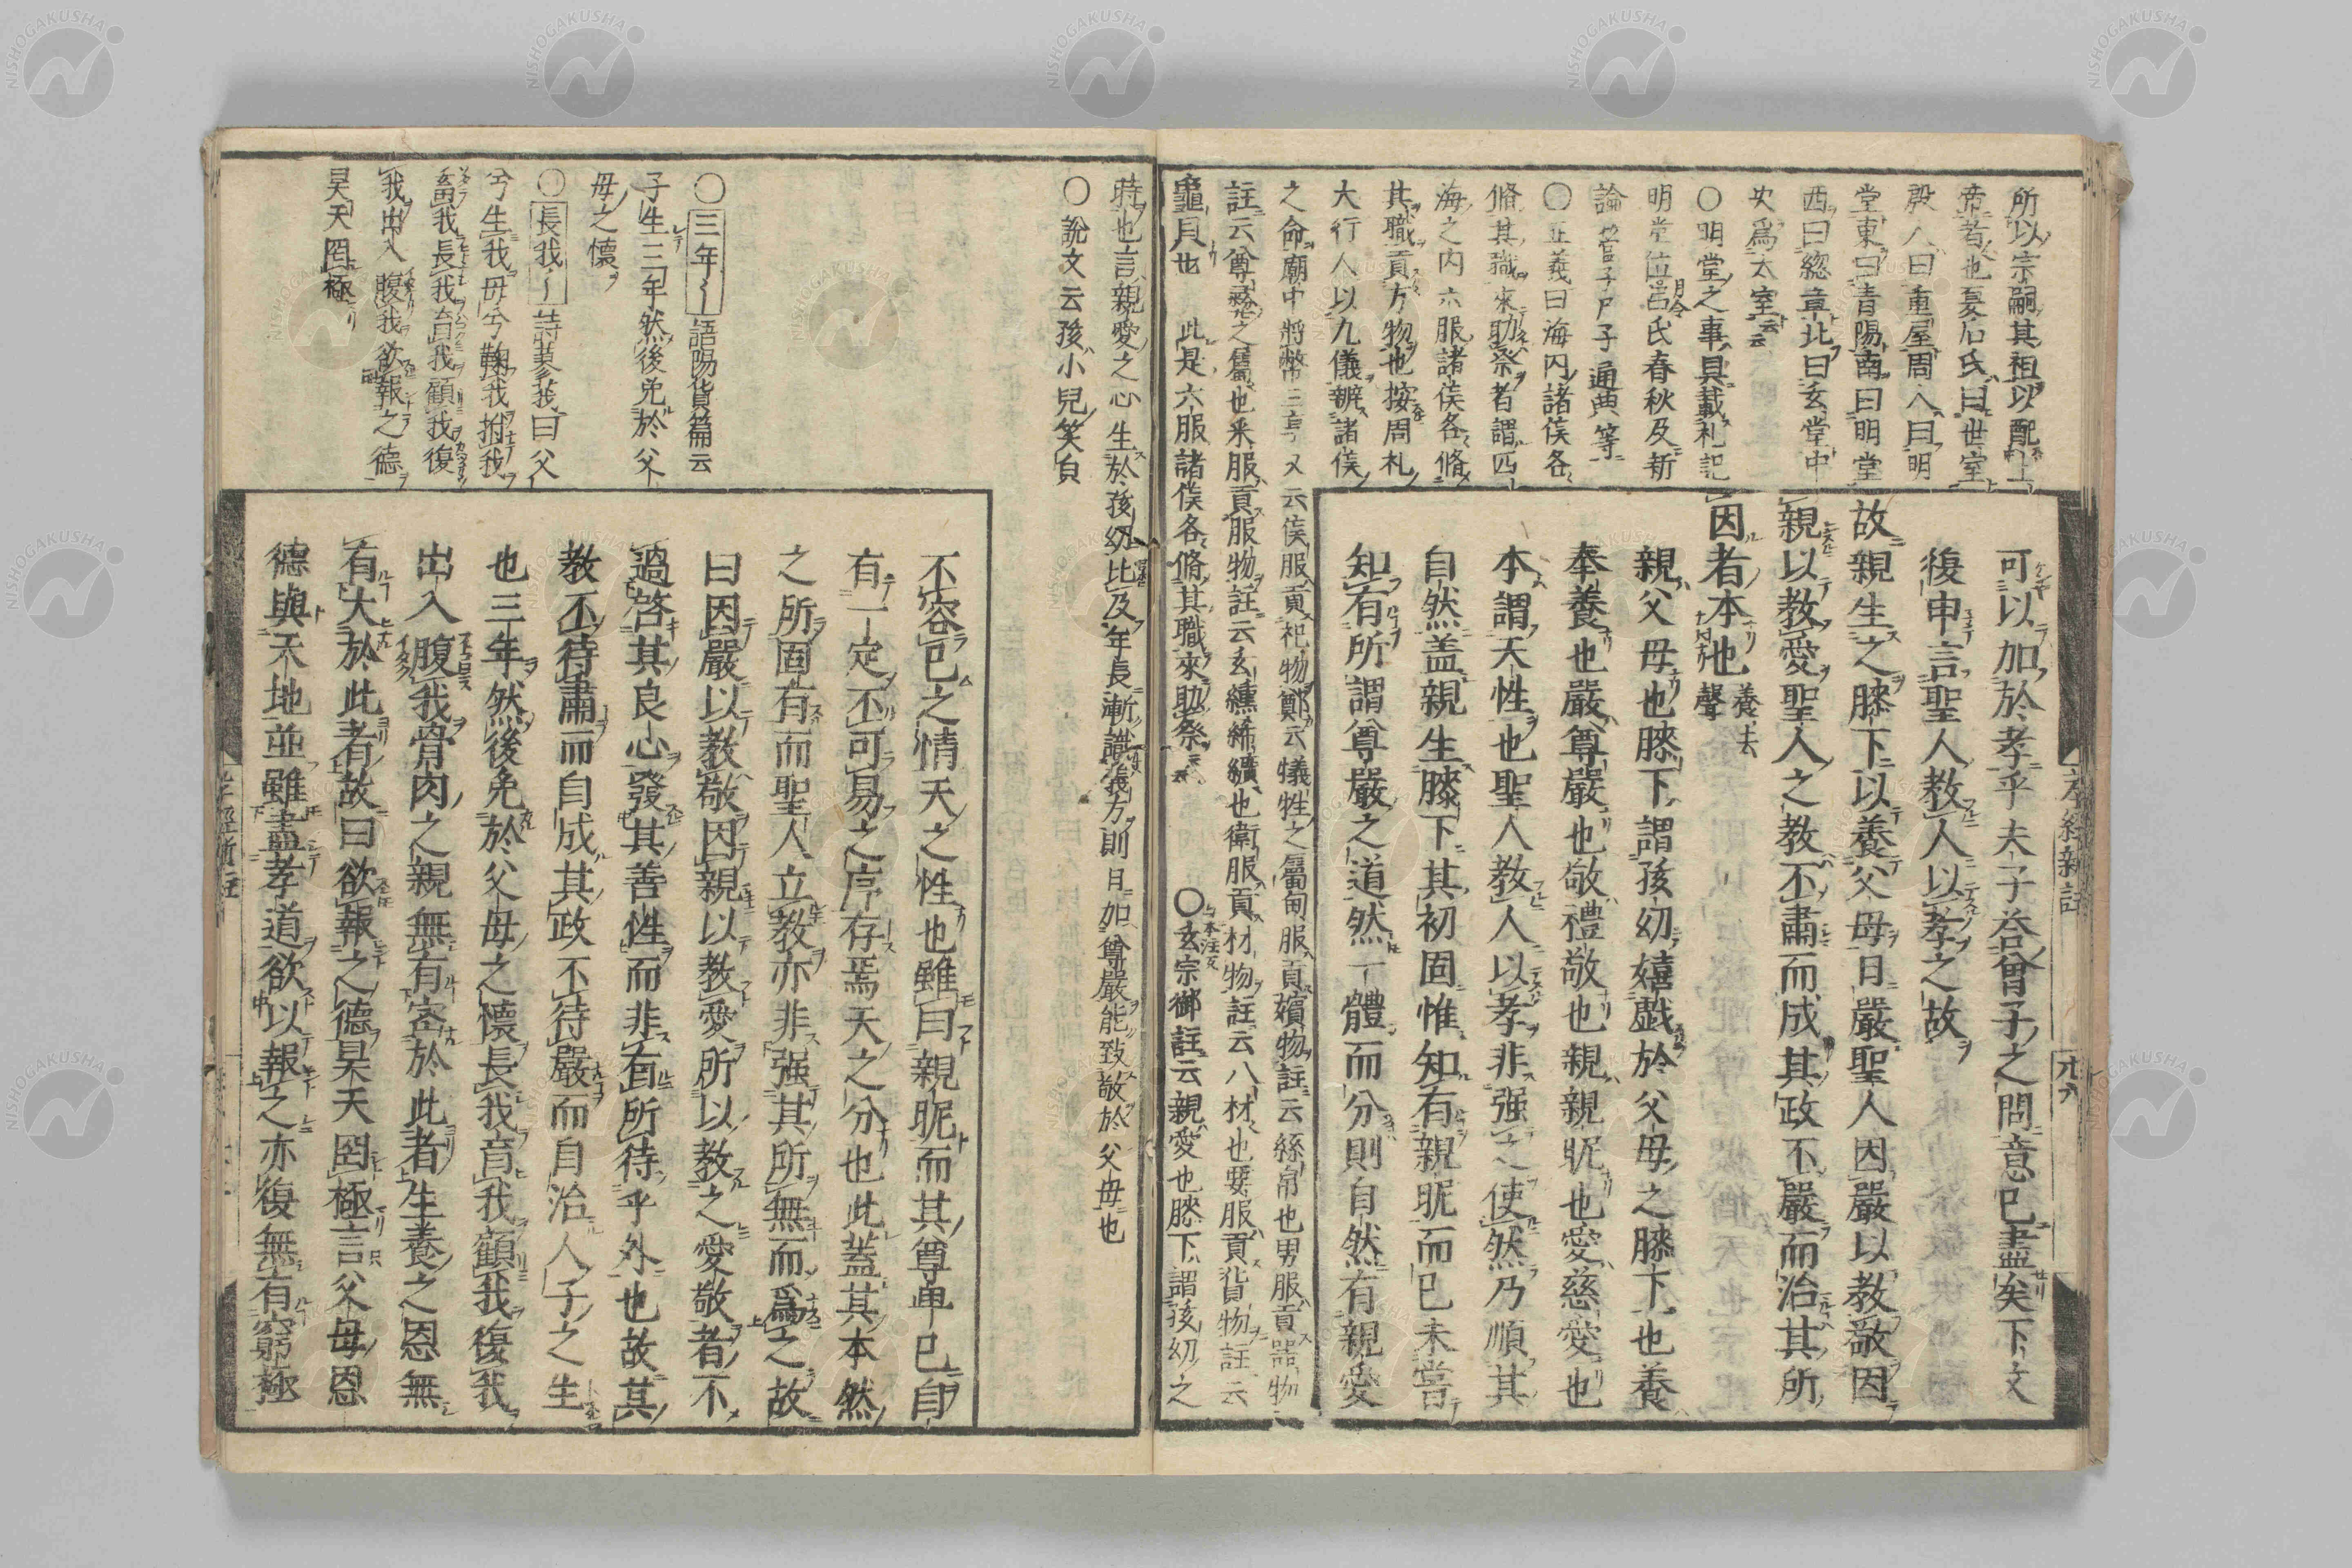 所以宗嗣其祖以配上
帝者也夏后氏曰世室
殷人曰重屋周人曰明
堂東曰青陽南曰明堂
西曰緫章北曰玄堂中
央爲太室云云
〇明堂之事具載礼記
明堂位月令呂氏春秋及新
論管子尸子通典等
〇正義曰海内諸侯各
脩其職來助祭者謂四
海之内六服諸侯各脩
其職貢方物也按周礼
大行人以九儀辨諸侯
之命廟中將幣三享又云侯服貢祀物鄭云犧牲之屬甸服貢嬪物註云絲帛也男服貢噐物
註云尊彛之屬也采服貢服物註云玄纁絺纊也衛服貢材物註云八材也要服貢貨物註云
龜貝也 此是六服諸侯各脩其職來助祭云云 〇玄宗御註云親愛也膝下謂孩幼之
可以加於孝乎夫子荅曾子之問意已盡矣下文
復申言聖人教人以孝之故
故親生之膝下以養父母日嚴聖人因嚴以教敬因
親以教愛聖人之教不肅而成其政不嚴而治其所
因者本也 養去聲
親父母也膝下謂孩幼嬉戲於父母之膝下也養
奉養也嚴尊嚴也敬禮敬也親親昵也愛慈愛也
本謂天性也聖人教人以孝非强之使然乃順其
自然盖親生膝下其初固惟知有親昵而已未嘗
知有所謂尊嚴之道然一體而分則自然有親愛
孝經新註
時也言親愛之心生於孩幼比及年長漸識義方則日加尊嚴能致敬於父母也
〇説文云孩小兒笑皃
〇三年〱語陽貨篇云
子生三年然後免於父
母之懷
〇長我〱詩蓼莪曰父
兮生我母兮鞠我拊我
畜我長我育我顧我復
我出入腹我欲報之德
昊天罔極
不容已之情天之性也雖曰親昵而其尊卑已自
有一定不可易之序存焉天之分也此蓋其本然
之所固有而聖人立教亦非强其所無而爲之故
曰因嚴以教敬因親以教愛所以教之愛敬者不
過啓其良心發其善性而非有所待乎外也故其
教不待肅而自成其政不待嚴而自治人子之生
也三年然後免於父母之懷長我育我顧我復我
出入腹我骨肉之親無有密於此者生養之恩無
有大於此者故曰欲報之德昊天罔極言父母恩
德與天地並雖盡孝道欲以報之亦復無有窮極